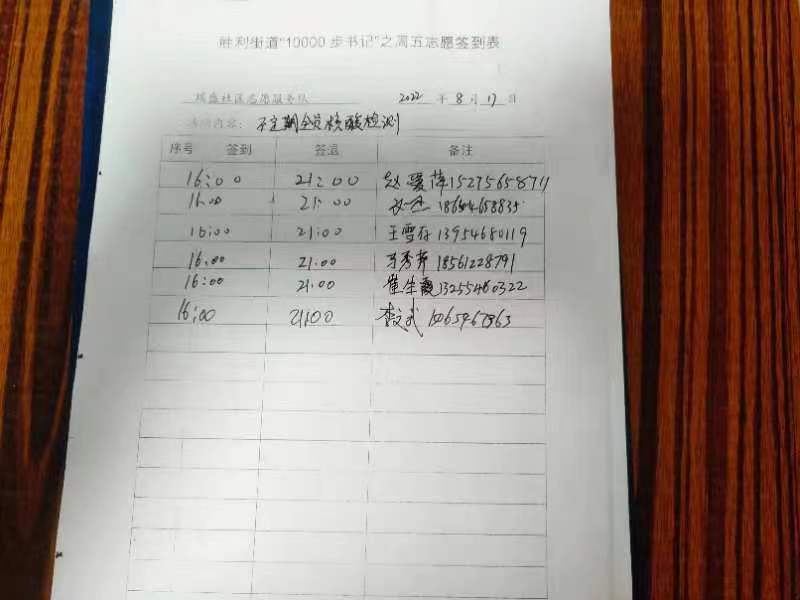 胜利街道“10000步书记”之周五志愿签到表
社区志愿服务队 2022 年 8 月 17 日
活动内容: 不定期全员核酸检测
序号 签到 签退 备注
16:00 21:00 赵 萍 15275658711
16:00 21:00
16:00 21:00 王雪 13954680119
16:00 21:00 马秀 18561228791
16:00 21:00 崔 霞 13255460322
16:00 21:00 李文武